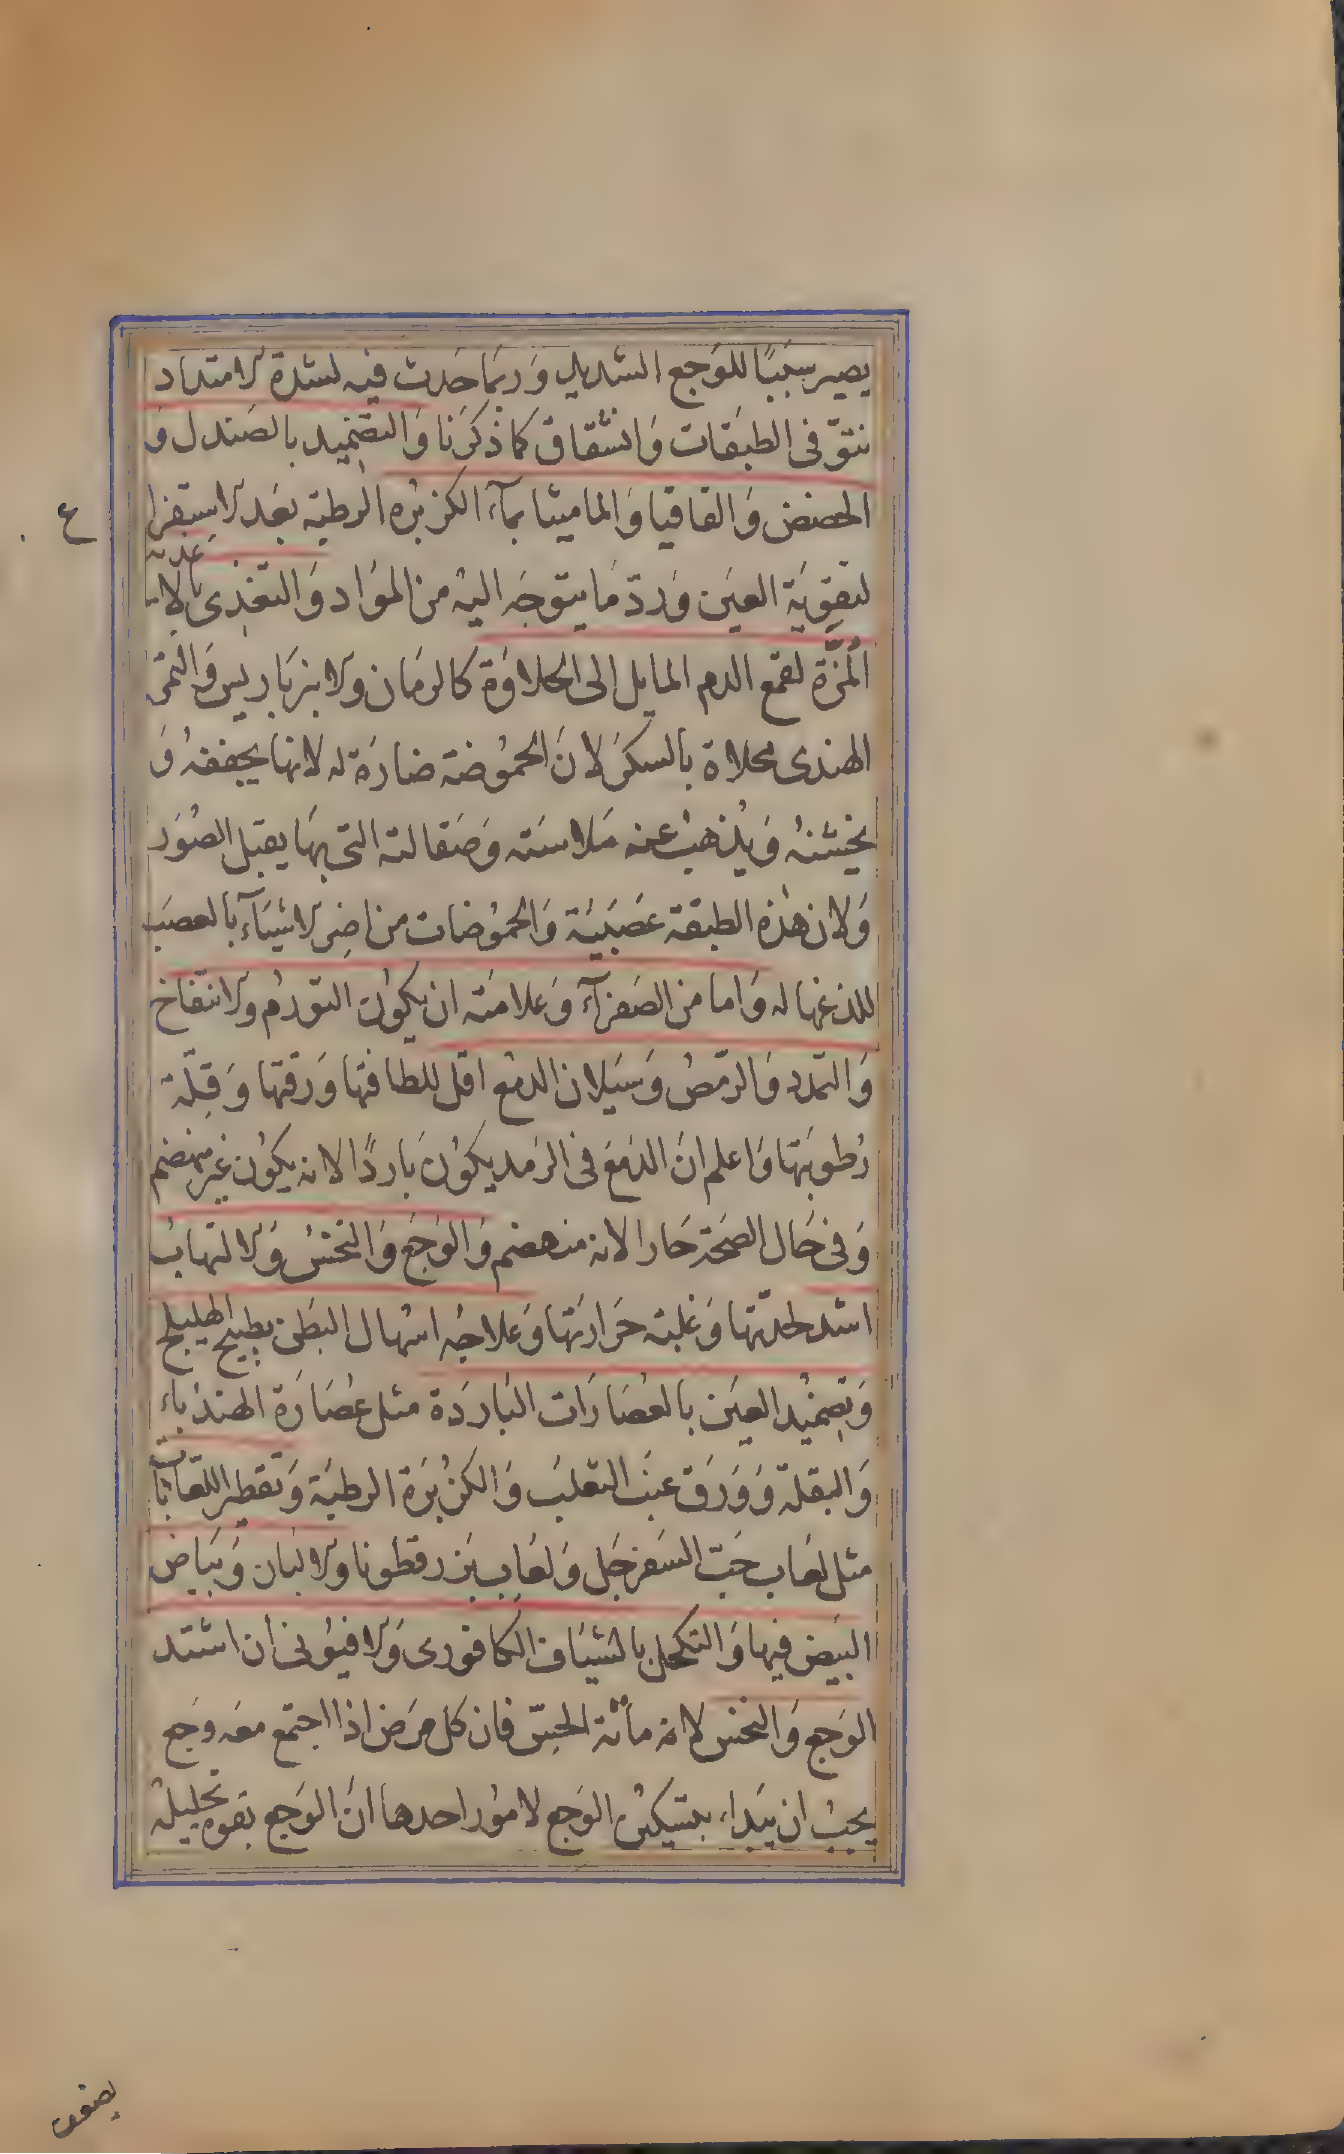 يصير سَبَبًا للوَجع الشديد وَربمَا حَدث فيه لشدة الامتداد
نتوّ فى الطبَقات وَانشقاق كما ذكرَنا وَالتضميد بالصَندل وَ
الحضض وَالقاقيا وَالماميثا بمآء الكزبرُه الرطبة بعَد الاستفرا
غ
لتقوية العيَن وَردّ مَا يتوجَه اليْه من الموَاد وَالتغذى بالا
غذية
المُزّة لقمع الدم المايل الى الحلاوَة كالرمَان والانبرَباريس وَالتمَر
الهندى محلاة بالسكرَ لانَ الحمُوضة ضارَة له لانها يجففهُ وَ
يخشنهُ وَيذهبُ عنه مَلاستَه وَصَقالته التى بهَا يقبَل الصُوَر
وَلان هٰذه الطبقة عصَبَيّة وَالحمُوضات من اضر الاشيَآء بالعصَب
للذعهَا له وَاما من الصَفرآء وَعلامتَه ان يكوُن التورّم والانتفاخ
وَالتمدد وَالرمّصُ وَسَيلان الدمْع اقل للطافتها وَرقتها وَقلّة
رُطوبَتها وَاعلم انَ الدَمع فى الرمَد يكوُن بَاردًا لانه يكوُن غير منهضم
وَفى حَال الصحَة حَارا لانه منهضم وَالوَجَع وَالنخسُ وَالالتهابُ
اشد لحدتّها وَغلبة حَرارَتها وَعلاجُه اسْهال البَطن بطبيخ الهليلج
وَتضميُد العيَن بالعصَارَات البَاردَة مثل عُصَارَة الهندبَاء
وَالبقلة وَوَرَق عنَب الثعلبَ وَالكزبَرة الرطبَة وَتقطير اللعَابات
مثل لعَاب حَبّ السَفرجَل وَلعَاب بَزرقطونا والالبَان وَبَيَاض
البَيض فيهَا وَالتكحل بالشيَاف الكافورى وَالافيوُنى ان اشتد
الوَجع وَالنخس لانه مأتة الحِسّ فان كل مرَض اذا اجتمع معَه وجَع
يجبُ ان يبَداء بتسكينُ الوَجع لامُور احدها انَ الوَجع بقوه تحليله
يضعف